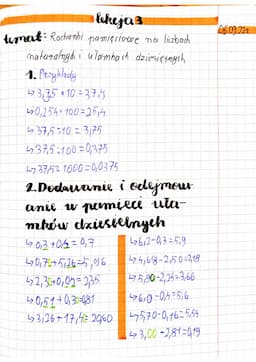 lekcja 3
06.09.22r
temat: Rachunki pamięciowe na liczbach
naturalnych i ułamkach dziesiętnych
1. Przykłady
↳ 3,75 * 10 = 37,5
↳ 0,254 * 100 = 25,4
↳ 37,5 : 10 = 3,75
↳ 37,5 : 100 = 0,375
↳ 37,5 : 1000 = 0,0375
2. Dodawanie i odejmow-
anie w pamięci uła-
mków dziesietnych
↳ 0,3 + 0,4 = 0,7
↳ 2,3 + 0,05 = 2,35
↳ 0,51 + 0,3 = 0,81
↳ 3,26 + 17,4 = 20,60
↳ 6,2 - 0,3 = 5,9
↳ 4,68 - 2,50 = 2,18
↳ 5,90 - 2,24 = 3,66
↳ 6,0 - 0,4 = 5,6
↳ 5,70 - 0,16 = 5,54
↳ 3,00 - 2,81 = 0,19